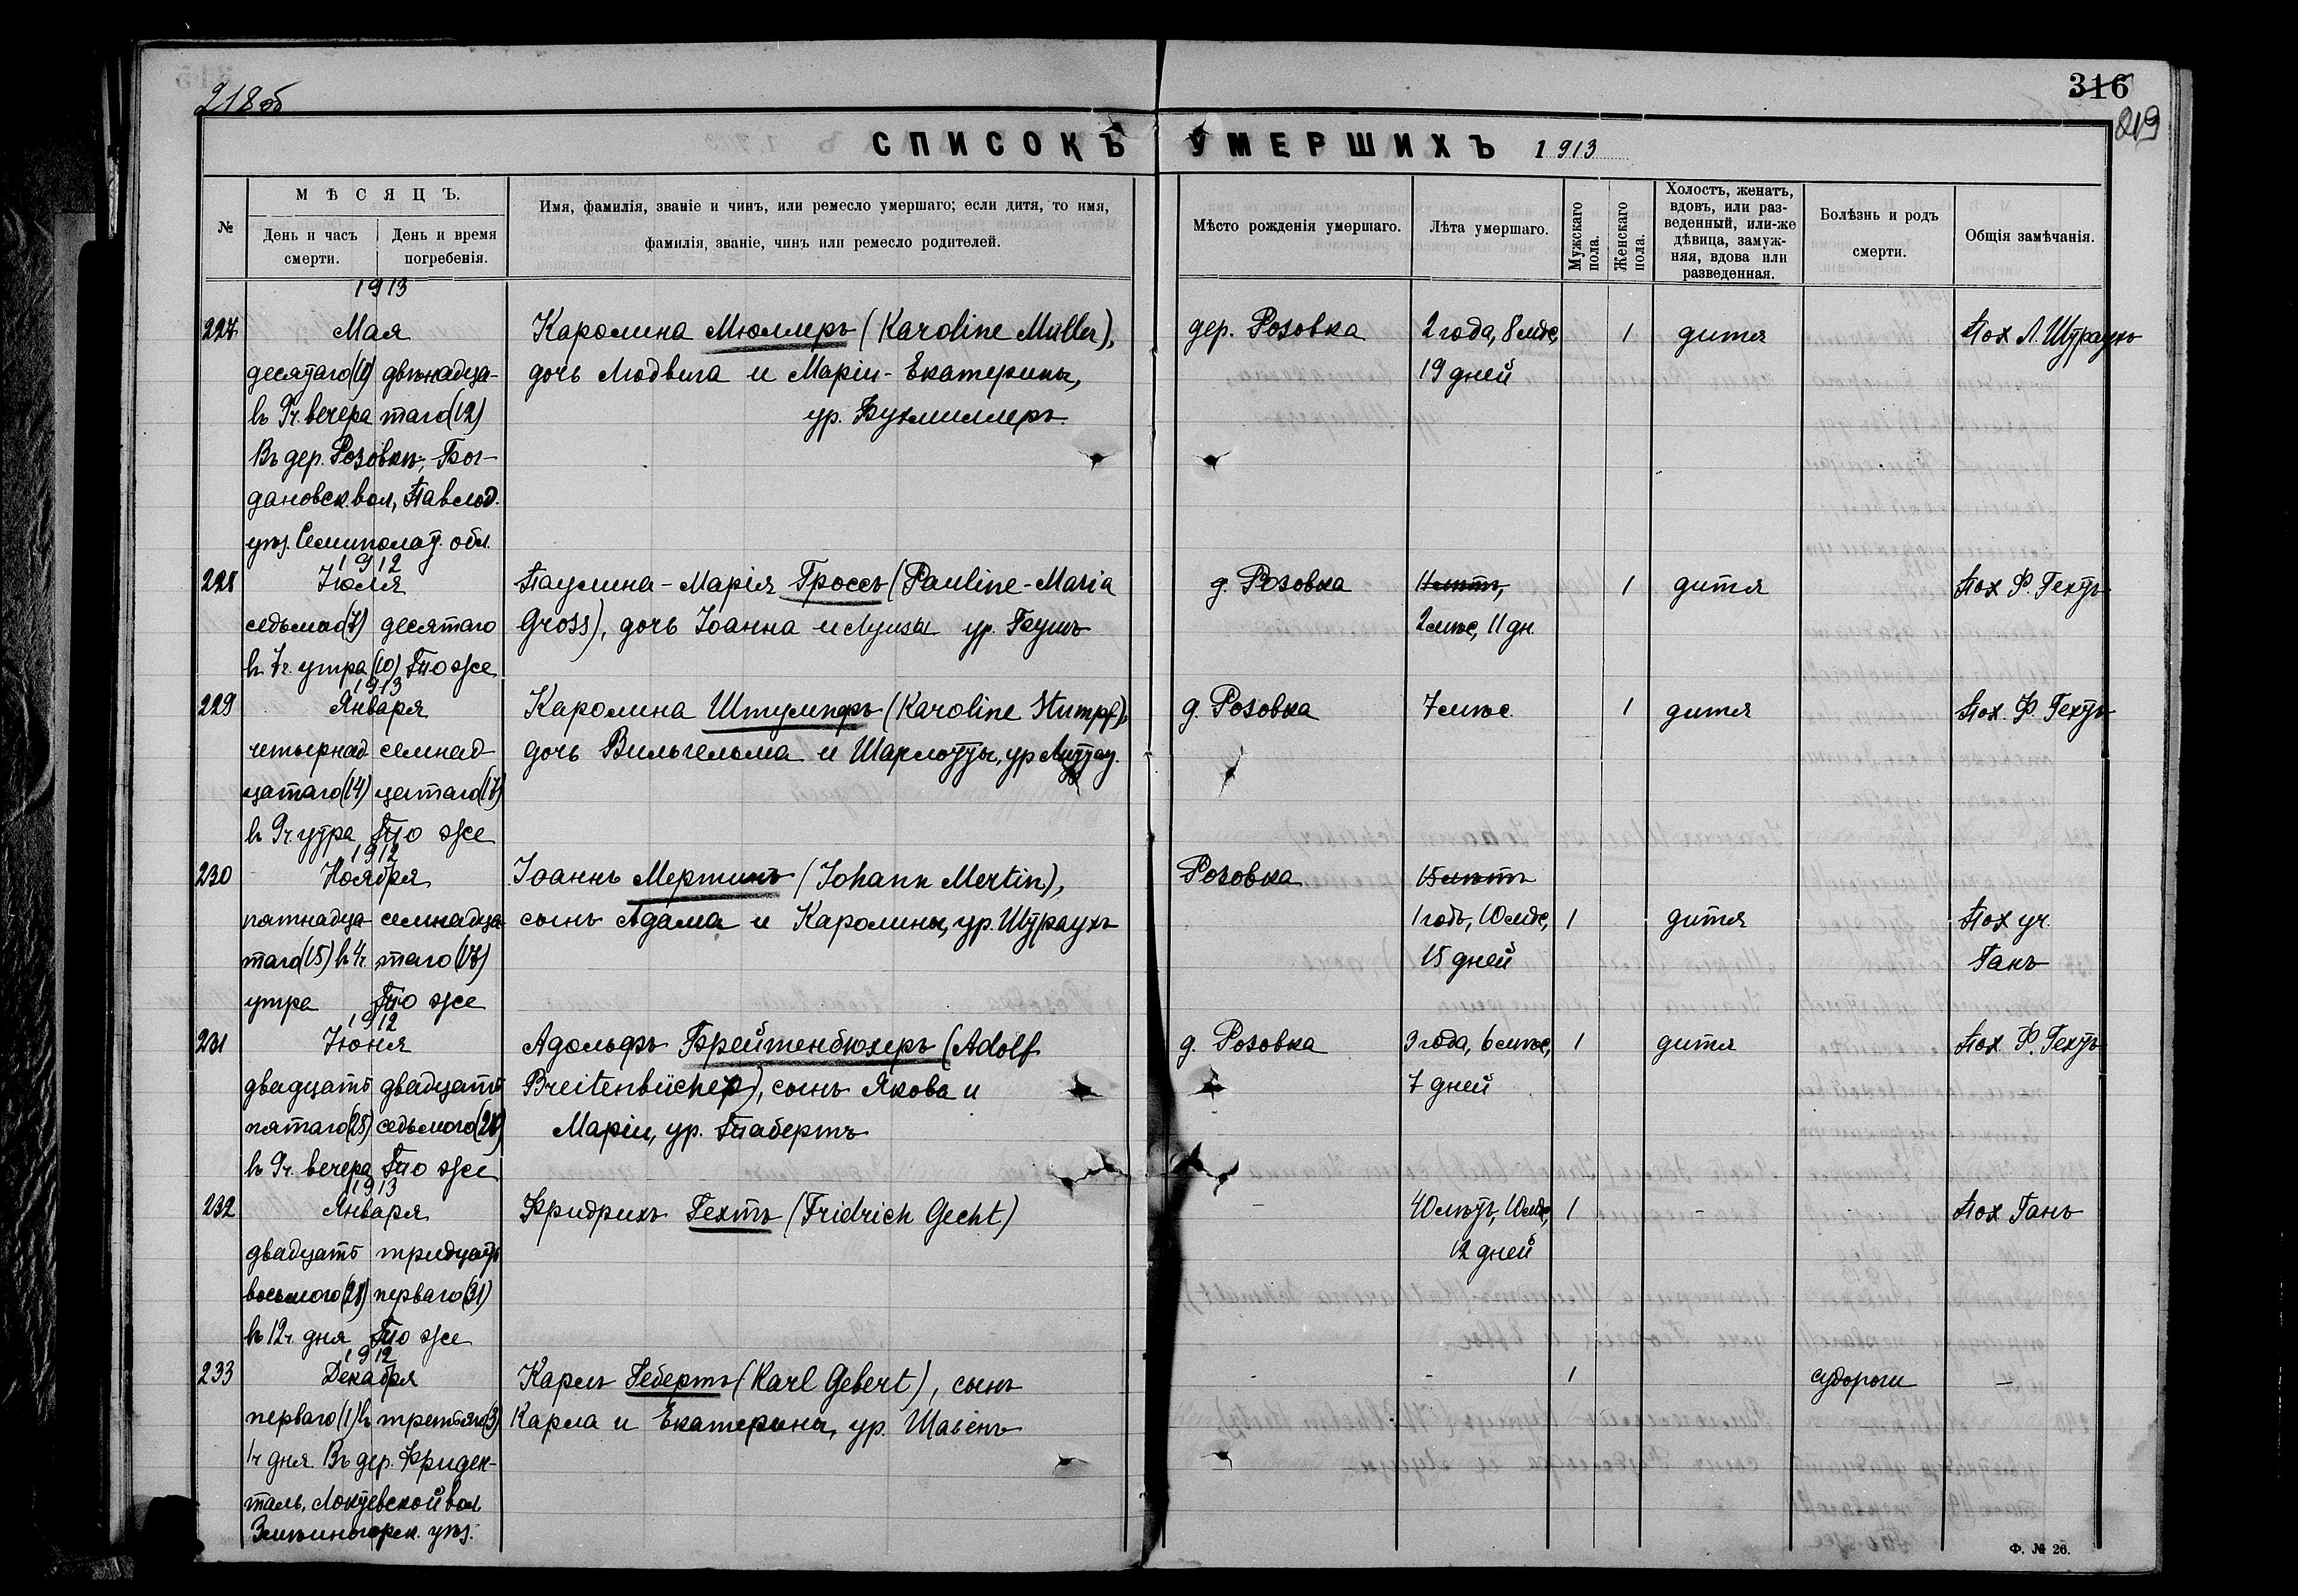 218 об
316
219
СПИСОКЪ УМЕРШИХЪ 1913
№
МѢСЯЦЪ.
День и часъ смерти.
День и время погребенія.
Имя, фамилія, званіе и чинъ, или ремесло умершаго; если дитя, то имя,
фамилія, званіе, чинъ или ремесло родителей.
Мѣсто рожденія умершаго.
Лѣта умершаго.
Мужскаго пола.
Женскаго пола.
Холостъ, женатъ,
вдовъ, или раз-
веденный, или-же
дѣвица, замуж-
няя, вдова или
разведенная.
Болѣзнь и родъ
смерти.
Общія замѣчанія.
1913
227 Мая Каролина Мюллеръ (Karoline Müller), дер. Розовка 2 года, 8 мѣс, 1 дитя Пох Л. Штраухъ
десятаго (10) двѣнадца- дочь Людвига и Маріи-Екатерины, 19 дней
въ 9ч. вечера таго (12) ур. Бухмиллеръ.
Въ дер. Розовкѣ, Бог-
дановск. вол., Павлод.
уѣз. Семиполат. обл.
1912
228 Іюля Паулина-Марія Гроссъ (Pauline-Maria д. Розовка 11 лѣтъ, 1 дитя Пох Ф. Гехтъ
седьмаго (7) десятаго Gross), дочь Іоанна и Луизы ур. Баумъ 2 мѣс, 11 дн.
въ 7ч. утра (10) Тпо же
1913
229 Января Каролина Штумпфъ (Karoline Stumpf), д. Розовка 7 мѣс. 1 дитя Пох. Ф. Гехтъ
четырнад семнад- дочь Вильгельма и Шарлотты, ур
цатаго (14) цатаго (17)
въ 9ч. утра Тпо же
1912
230 Ноября Іоаннъ Мертинъ (Johann Mertin), Розовка 15 лѣтъ
пятнадца- семнадца- сынъ Адама и Каролины, ур. Штраухъ 1 годъ, 10 мѣс, 1 дитя Пох уч.
таго (15) въ 4ч. таго (17) 15 дней Ганъ
утра Тпо же
1912
231 Іюня Адольфъ Брейтенбюхеръ (Adolf д. Розовка 3 года, 6 мѣс, 1 дитя Пох Ф. Гехтъ
двадцать двадцать Breitenbücher), сынъ Якова и 7 дней
пятаго (25) седьмого (27) Маріи, ур. Табертъ
въ 9ч. вечера Тпо же
1913
232 Января Фридрихъ Гехтъ (Fridrich Gecht) - 40 лѣтъ, 10 мѣс, 1 - - Пох Ганъ
двадцать тридцать 12 дней
восьмого (28) перваго (31)
въ 12ч. дня Тпо же
1912
233 Декабря Карлъ Гебертъ (Karl Gebert), сынъ - - 1 судороги -
перваго (1) въ третьяго (3) Карла и Екатерины, ур. Шавенъ
1ч дня. Въ дер. Фриден-
таль, Локтевской вол.
Змѣиногорск. уѣз.
Ф. № 26.